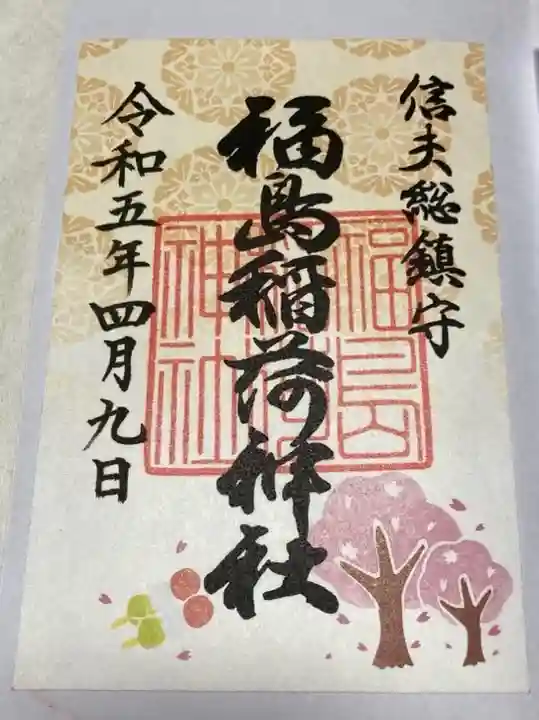 信夫総鎮守
福島稲荷神社
令和五年四月九日
福島
稲荷
神社